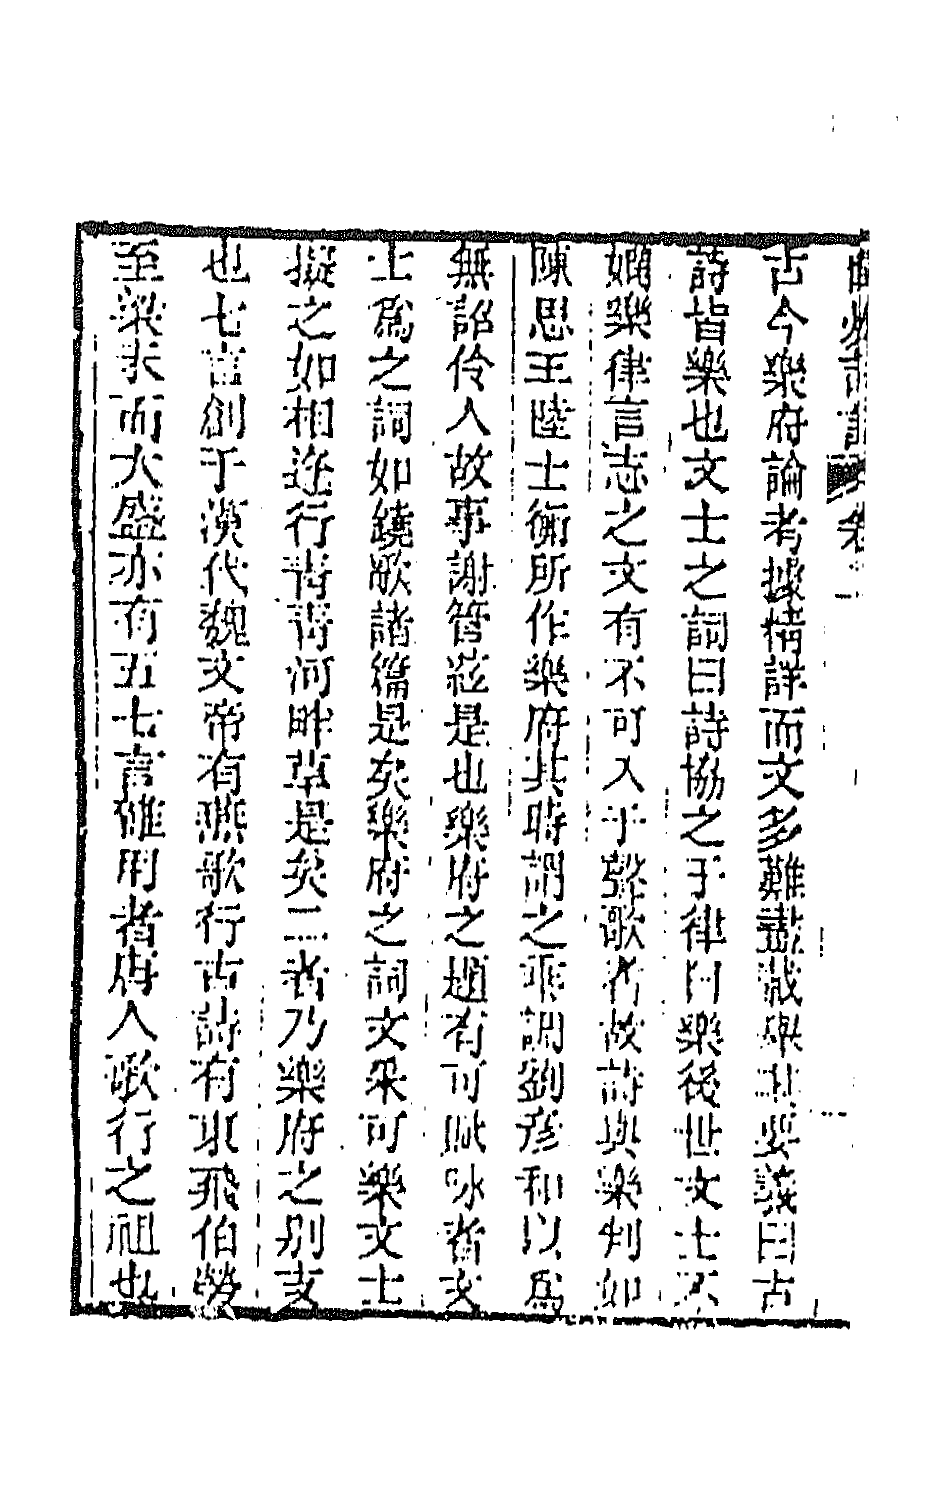 古今樂府論考據精詳而文多難盡載舉其要義曰古
詩皆樂也文士之詞曰詩協之于律曰樂後世文士不
嫺樂律言志之文有不可入于聲歌者故詩與樂判如
陳思王陸士衡所作樂府其時謂之乖調劉彥和以爲
無詔伶人故事謝管絃是也樂府之題有可賦咏者文
士爲之詞如鐃歌諸篇是矣樂府之詞文采可樂文士
擬之如相逢行靑靑河畔草是矣二者乃樂府之别支
也七言創于漢代魏文帝有燕歌行古詩有東飛伯勞
至梁末而大盛亦有五七言雜用者唐人歌行之祖也